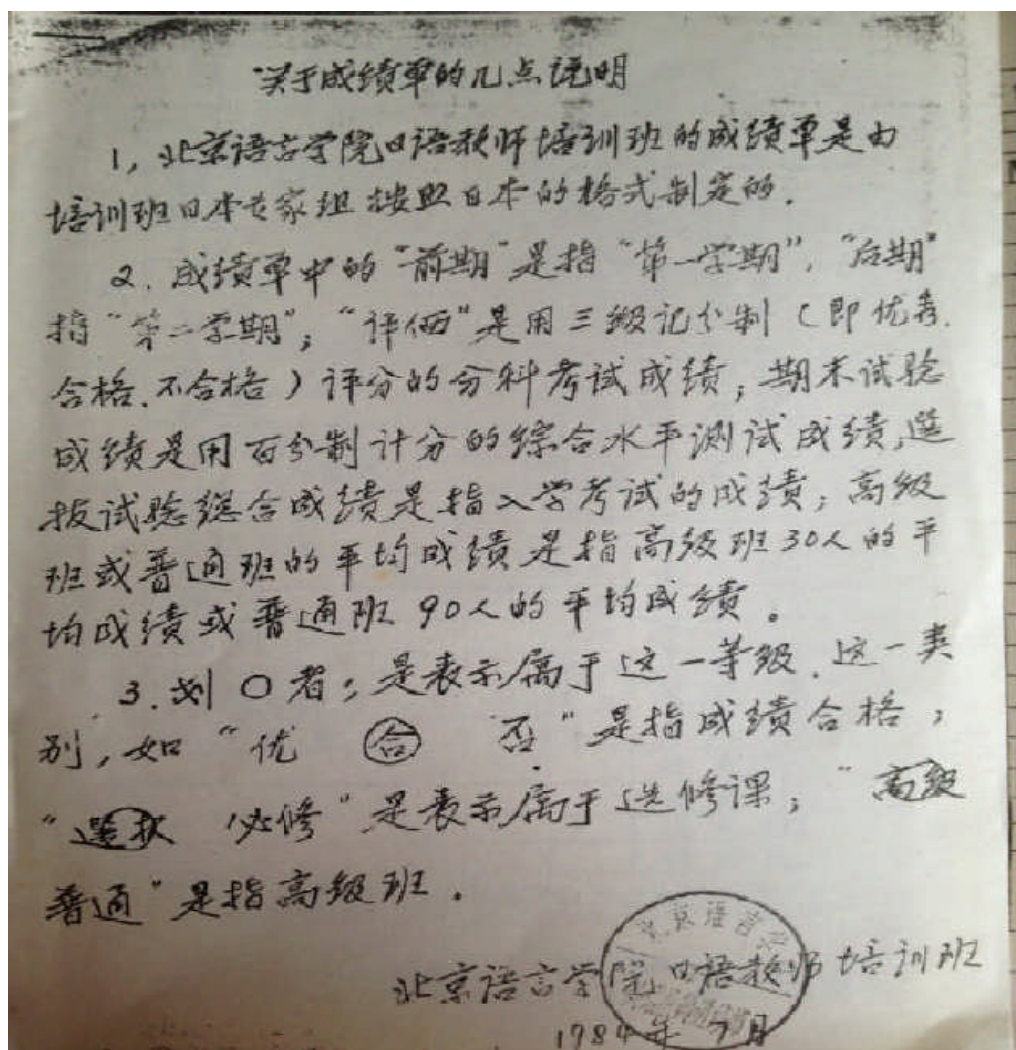 关于成绩单的几点说明
1,北京语言学院日语教师培训班的成绩单是由
培训班日本专家组按照日本的格式制定的.
2.成绩单中的“前期”是指“第一学期”,“后期”
指“第二学期”;“评価”是用三级记分制(即优秀.
合格.不合格)评分的分科考试成绩;期末试验
成绩是用百分制计分的综合水平测试成绩,选
拔试验总合成绩是指入学考试的成绩;高级
班或普通班的平均成绩是指高级班30人的平
均成绩或普通班90人的平均成绩。
3.划〇者,是表示属于这一等级.这一类
别,如“优 合 否”是指成绩合格;
“選択 必修”是表示属于选修课;“高级
普通”是指高级班.
北京语言学院日语教师培训班
1984年7月
北京语言学